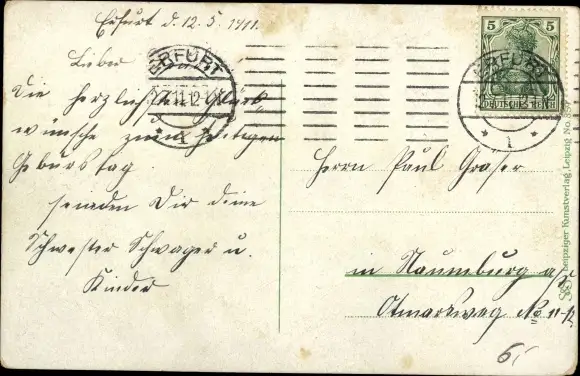 Erfurt d. 12.5.1911.
Lieber
Die herzlichsten Glück
wünsche zum heutigen
Geburstag
senden Dir deine
Schwester Schwager u.
Kinder
ERFURT
* 1 *
5 5
DEUTSCHES REICH
ERFURT
* 1 *
Herrn Paul Graser
in Naumburg a/S
Otmarsweg No 11-12
Leipziger Kunstverlag, Leipzig No.
6,-